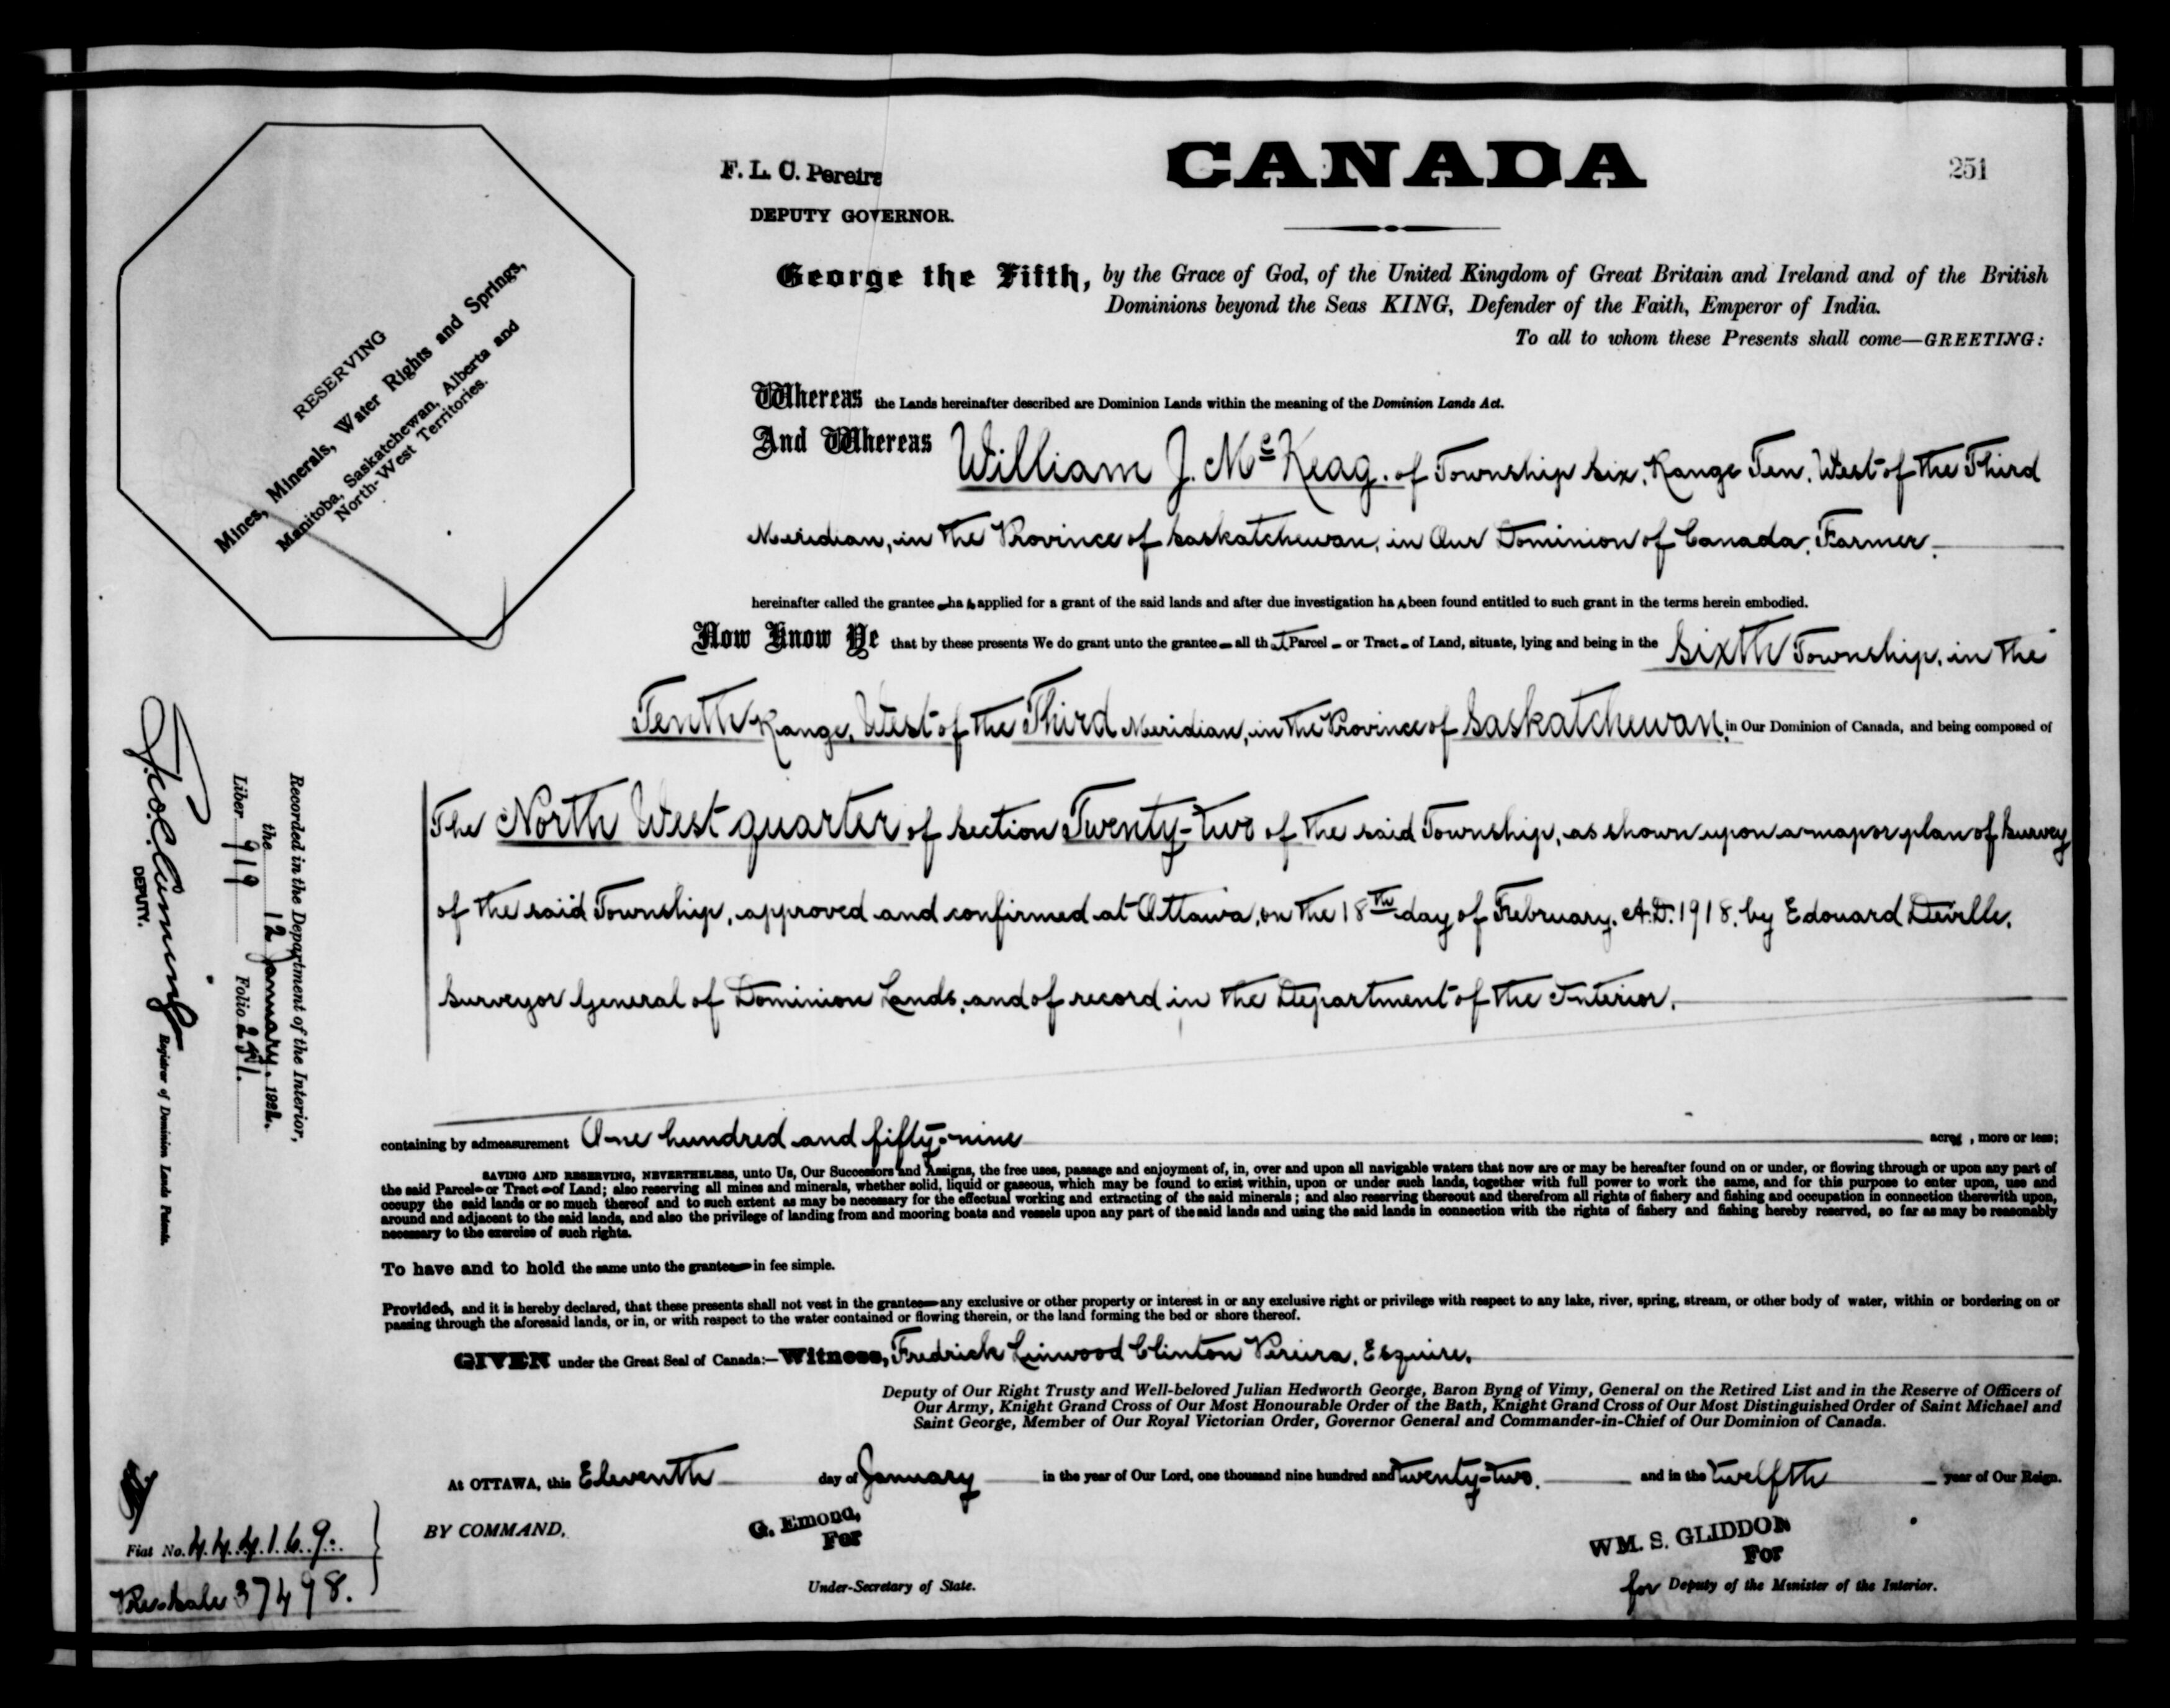 CANADA
251
F. L. C. Pereira
DEPUTY GOVERNOR.
George the Fifth, by the Grace of God, of the United Kingdom of Great Britain and Ireland and of the British
Dominions beyond the Seas KING, Defender of the Faith, Emperor of India.
To all to whom these Presents shall come—GREETING:
RESERVING
Mines, Minerals, Water Rights and Springs,
Manitoba, Saskatchewan, Alberta and
North-West Territories.
Whereas the Lands hereinafter described are Dominion Lands within the meaning of the Dominion Lands Act.
And Whereas William J. McKeag. of Township Six, Range Ten. West of the Third
Meridian, in the Province of Saskatchewan, in Our Dominion of Canada, Farmer.
hereinafter called the grantee has applied for a grant of the said lands and after due investigation has been found entitled to such grant in the terms herein embodied.
Now Know Ye that by these presents We do grant unto the grantee all that Parcel or Tract of Land, situate, lying and being in the Sixth Township, in the
Tenth Range, West of the Third Meridian, in the Province of Saskatchewan, in Our Dominion of Canada, and being composed of
The North West quarter of Section Twenty-two of the said Township, as shown upon a map or plan of Survey
of the said Township, approved and confirmed at Ottawa, on the 18th day of February, A.D. 1918, by Edouard Deville,
Surveyor General of Dominion Lands, and of record in the Department of the Interior.
containing by admeasurement One hundred and fifty-nine acres, more or less;
SAVING AND RESERVING, NEVERTHELESS, unto Us, Our Successors and Assigns, the free uses, passage and enjoyment of, in, over and upon all navigable waters that now are or may be hereafter found on or under, or flowing through or upon any part of
the said Parcel or Tract of Land; also reserving all mines and minerals, whether solid, liquid or gaseous, which may be found to exist within, upon or under such lands, together with full power to work the same, and for this purpose to enter upon, use and
occupy the said lands or so much thereof and to such extent as may be necessary for the effectual working and extracting of the said minerals; and also reserving thereout and therefrom all rights of fishery and fishing and occupation in connection therewith upon,
around and adjacent to the said lands, and also the privilege of landing from and mooring boats and vessels upon any part of the said lands and using the said lands in connection with the rights of fishery and fishing hereby reserved, so far as may be reasonably
necessary to the exercise of such rights.
To have and to hold the same unto the grantee in fee simple.
Provided, and it is hereby declared, that these presents shall not vest in the grantee any exclusive or other property or interest in or any exclusive right or privilege with respect to any lake, river, spring, stream, or other body of water, within or bordering on or
passing through the aforesaid lands, or in, or with respect to the water contained or flowing therein, or the land forming the bed or shore thereof.
GIVEN under the Great Seal of Canada:—Witness, Fredrick Linwood Clinton Pereira, Esquire,
Deputy of Our Right Trusty and Well-beloved Julian Hedworth George, Baron Byng of Vimy, General on the Retired List and in the Reserve of Officers of
Our Army, Knight Grand Cross of Our Most Honourable Order of the Bath, Knight Grand Cross of Our Most Distinguished Order of Saint Michael and
Saint George, Member of Our Royal Victorian Order, Governor General and Commander-in-Chief of Our Dominion of Canada.
At OTTAWA, this Eleventh day of January in the year of Our Lord, one thousand nine hundred and twenty-two. and in the twelfth year of Our Reign.
BY COMMAND,
G. Emond,
For
Under-Secretary of State.
WM. S. GLIDDON
For
for Deputy of the Minister of the Interior.
Recorded in the Department of the Interior,
the 12 January. 1922.
Liber 919 Folio 251.
DEPUTY.
Registrar of Dominion Lands Patents.
Fiat No. 444169.
37498.